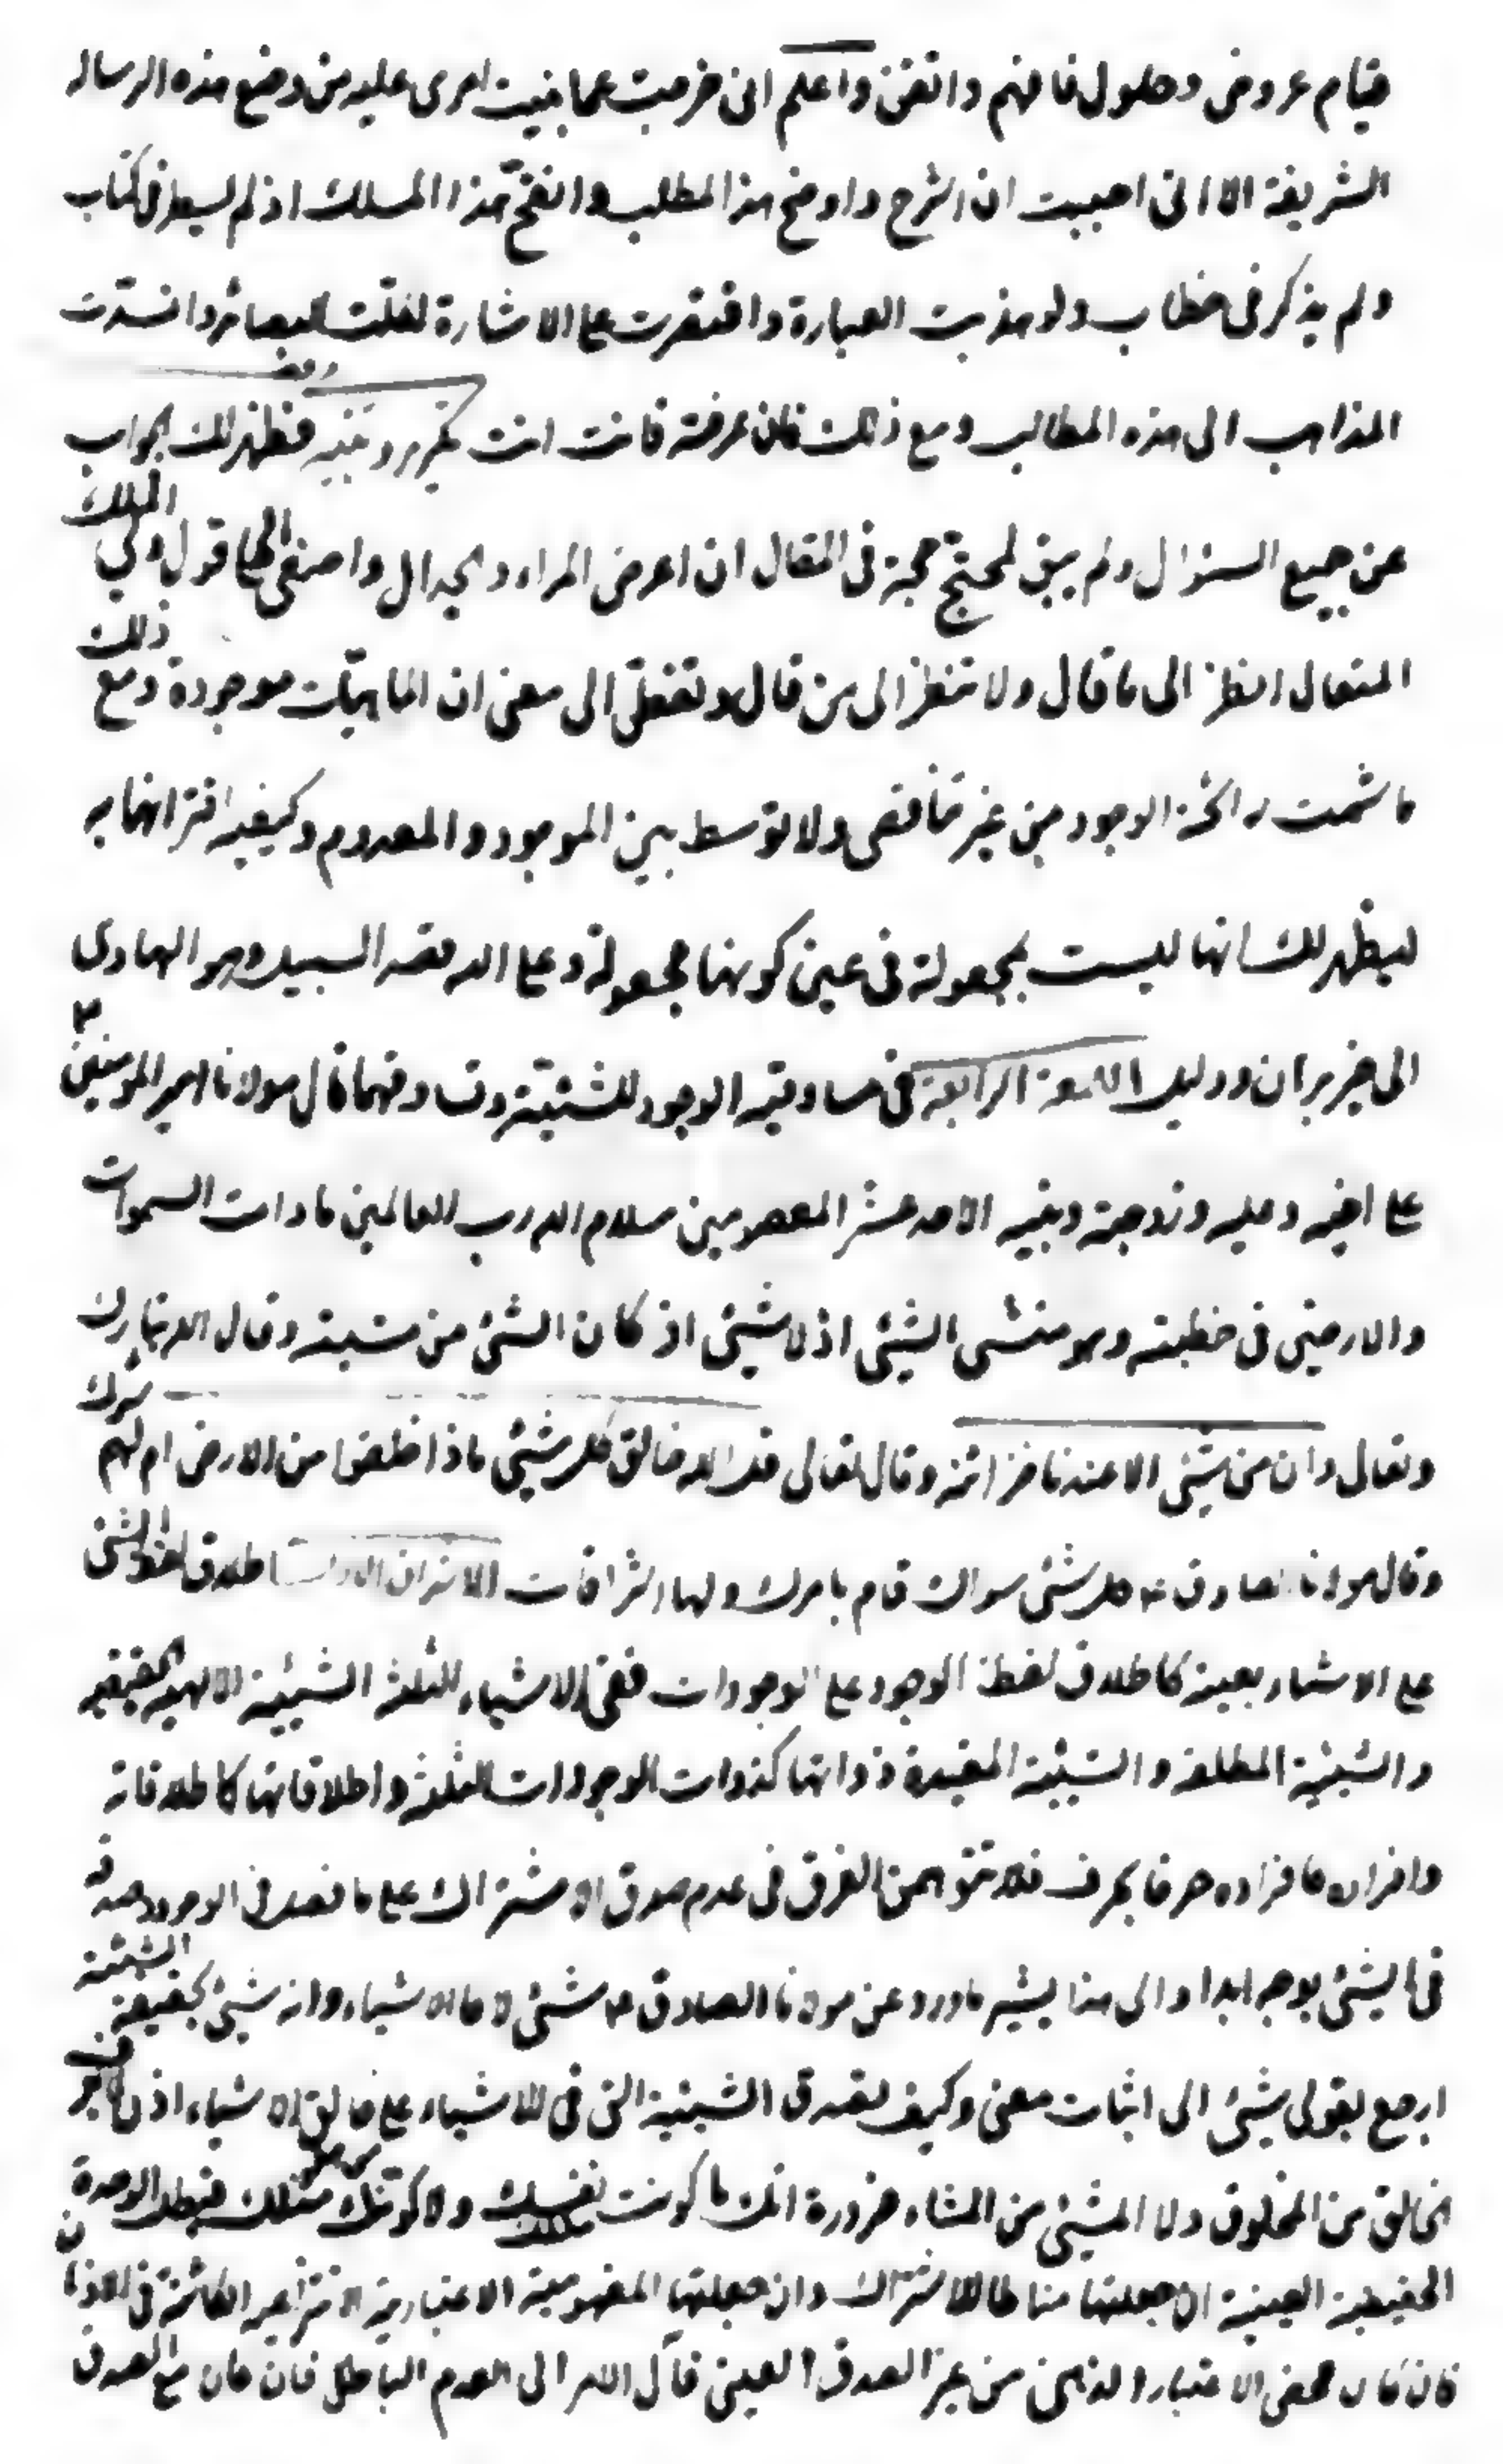 قيام عروض وحلول فافهم واتقن واعلم انى خرجت عما بنيت امرى عليه من وضع هذه الرساله
الشريفة الا انى احببت ان اشرح واوضح هذا المطلب وانقح هذا المسلك اذ لم يسطر فى كتاب
ولم يذكر فى خطاب ولو هذبت العبارة واقتصرت على الاشارة لغلّت البصائر وانسدّت
المذاهب الى هذه المطالب ومع ذلك فان عرفته فانت انت فظهر لك الجواب
عن جميع السئوال ولم يبق لمحتج حجة فى المقال ان اعرض المراء والجدال واصغى الى ما قول ولى الملك
المتعال انظر الى ما قال ولا تنظر الى من قال وتفطّن الى معنى ان الماهيّات موجودة ومع ذلك
ما شمت رائحة الوجود من غير تناقض ولا توسط بين الموجود والمعدوم وكيفية اقترانها به
ليظهر لك انها ليست بمجعولة فى عين كونها مجعولة وعلى الله قصد السبيل وهو الهادى
الى خير برهان ودليل اللمعة الرابعة فى مساوقية الوجود للشيئيّة وتساوقهما قال مولانا امير المومنين
على اخيه وعليه وزوجته وبنيه الاحد عشر المعصومين سلام الله رب العالمين ما دامت السموات
والارضين فى خطبته وهو منشى الشيئى اذ لا شيئى اذ كان الشئ من مشيته وقال الله تبارك
وتعالى وان من شيئى الا عندنا خزائنه وقال تعالى قل الله خالق كل شيئى ماذا خلقوا من الارض ام لهم شرك
وقال مولانا الصادق ع كل شئى سواك قام بامرك ولها اشراقات الاشراق الاول اطلاق لفظ الشئ
على الاشياء بعينه كاطلاق لفظ الوجود على الوجودات ففى الاشياء الثلثة الشيئية الالهية الحقيقية
والشيئية المطلقة والشيئية المقيدة ذواتها كذوات الوجودات الثلثة واطلاقاتها كاطلاقاته
وافراده كافراده حرفا بحرف فلا تتوهمن الفرق فى عدم صدق الاشتراك على ما فصل فى الوجود وصدقه
فى الشيئى بوجه ابدا والى هذا يشير ما ورد عن مولانا الصادق ع شئى لا كالاشياء وانه شيئ بحقيقة الشيئية
ارجع بقولى شيئى الى اثبات معنى وكيف تصدق الشيئية التى فى الاشياء على خالق الاشياء اذن
الخالق من المخلوق ولا المشيئى من المشاء ضرورة انك ما كونت نفسك ولا كوّنك مثلك فبطل الوحدة
الحقيقية العينية ان جعلتها مناطا للاشتراك وان جعلتها المفهومية الاعتبارية الانتزاعية الكائنة فى الاذهان
فان كان محض الاعتبار والذهن من غير الصدق العينى فآل الامر الى العدم الباطل فان كان مع الصدق